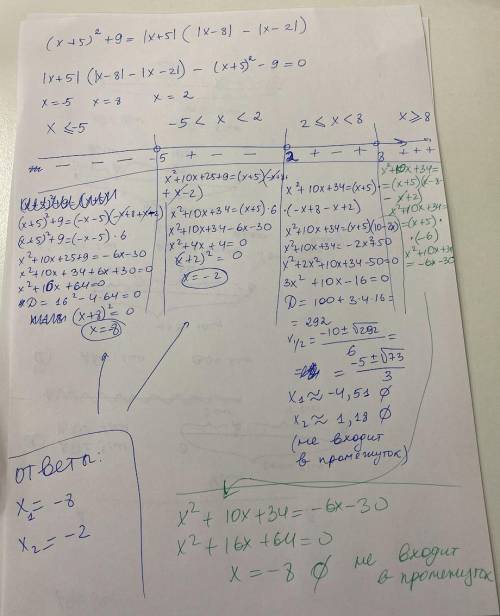 (x+5)² + 9 = |x+5| (|x-8| - |x-2|)
|x+5| (|x-8| - |x-2|) - (x+5)² - 9 = 0
x=-5 x=8 x=2
x ≤ -5
-5 < x < 2
2 ≤ x < 8
x ≥ 8
- - - -5 + - - 2 + - + 8 + + +
(x+5)²+9=(-x-5)(-x+8+x-2)
(x+5)²+9=(-x-5)·6
x²+10x+25+9=-6x-30
x²+10x+34+6x+30=0
x²+16x+64=0
D=16²-4·64=0
(x+8)²=0
x=-8
x²+10x+25+9=(x+5)(-x+8
+x-2)
x²+10x+34=(x+5)·6
x²+10x+34-6x-30
x²+4x+4=0
(x+2)²=0
x=-2
x²+10x+34=(x+5)
·(-x+8-x+2)
x²+10x+34=(x+5)(10-2x)
x²+10x+34=-2x²+50
x²+2x²+10x+34-50=0
3x²+10x-16=0
D=100+3·4·16=
=292
x1/2 = -10±√292 / 6 =
= -5±√73 / 3
x₁ ≈ -4,51 ∅
x₂ ≈ 1,18 ∅
(не входит
в промежуток)
x²+10x+34=
=(x+5)(x-8-
-x+2)
x²+10x+34=
=(x+5)·
·(-6)
x²+10x+34
=-6x-30
ответы:
x₁=-8
x₂=-2
x²+10x+34=-6x-30
x²+16x+64=0
x=-8 ∅ не входит
в промежуток